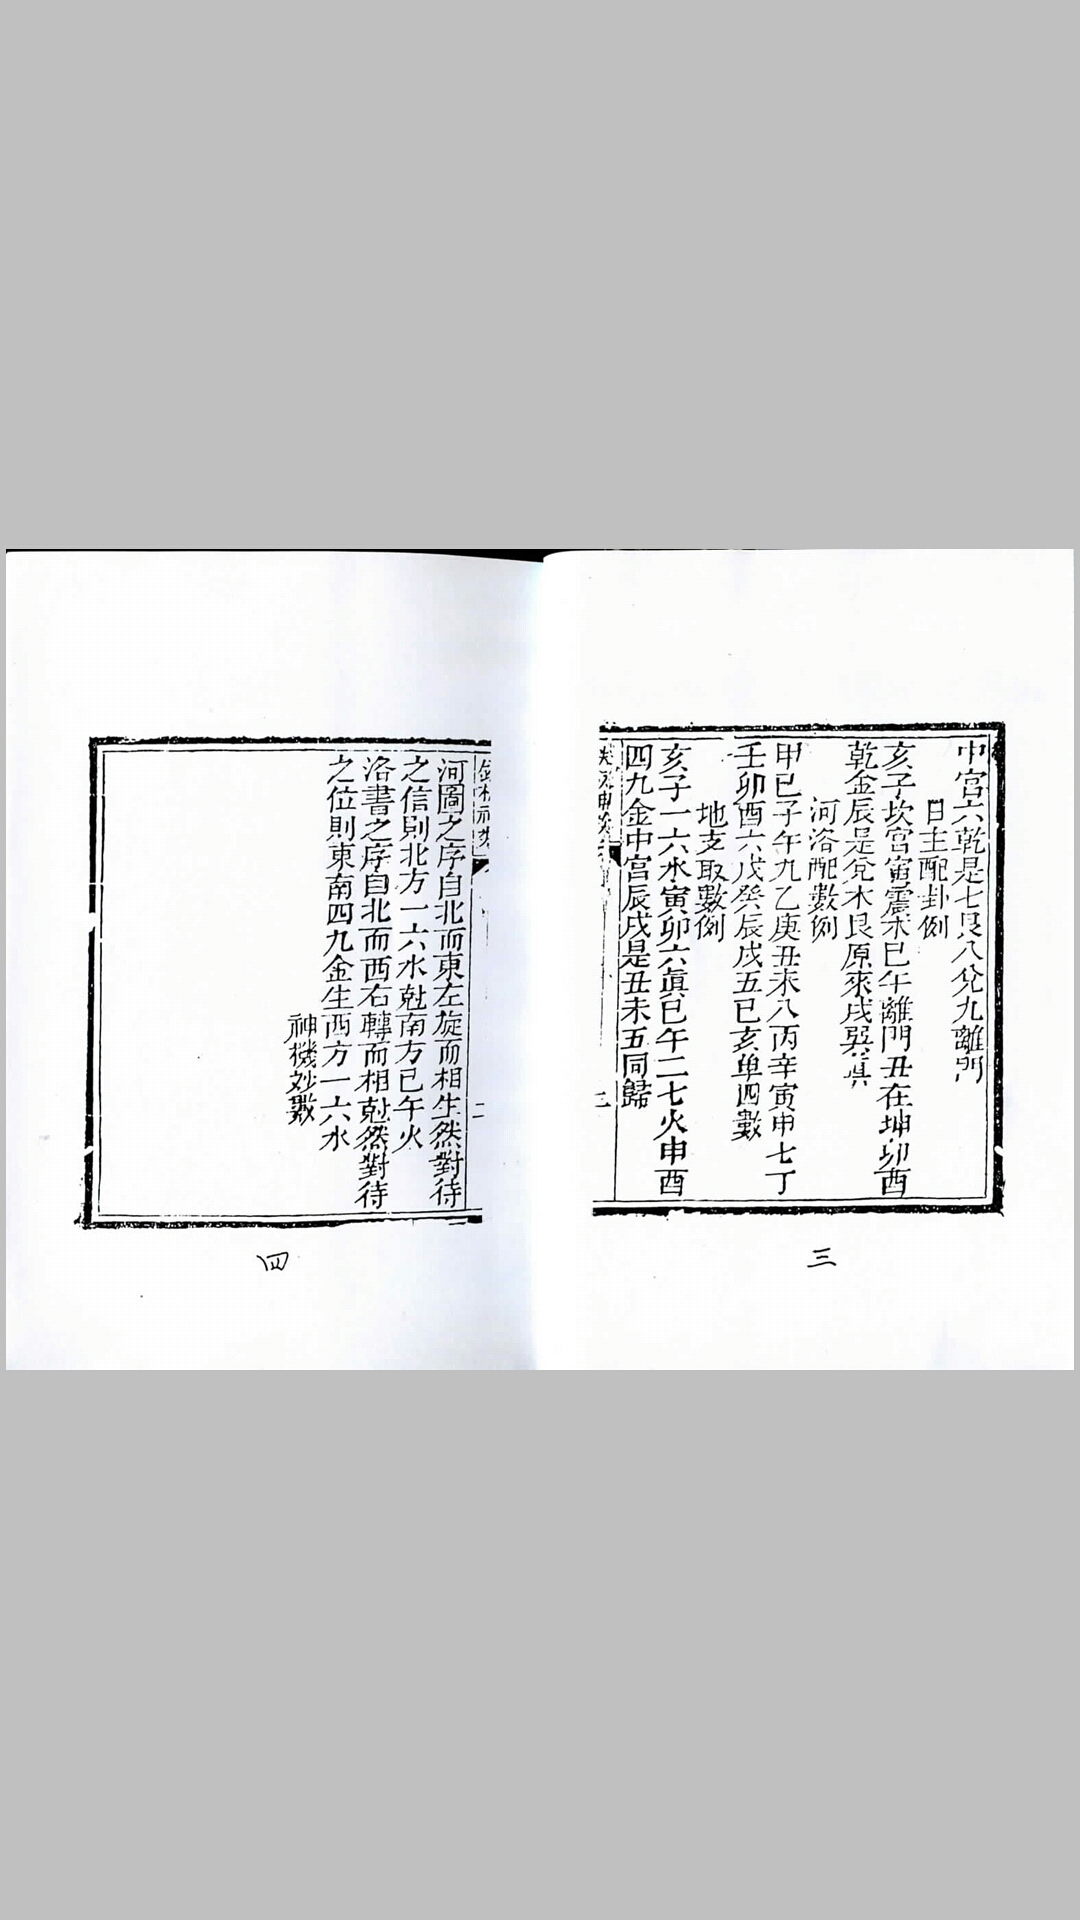 中宮六乾是七艮八兌九離門
日主配卦例
亥子坎宮寅震木巳午離門丑在坤卯酉
乾金辰是兌木艮原來戌巽真
河洛配數例
甲已子午九乙庚丑未八丙辛寅申七丁
壬卯酉六戊癸辰戌五巳亥单四數
地支取數例
亥子一六水寅卯六眞巳午二七火申酉
四九金中宮辰戌是丑未五同歸
三
三
河圖之序自北而東左旋而相生然對待
之信則北方一六水尅南方巳午火
洛書之序自北而西右轉而相尅然對待
之位則東南四九金生西方一六水
神機妙數
四